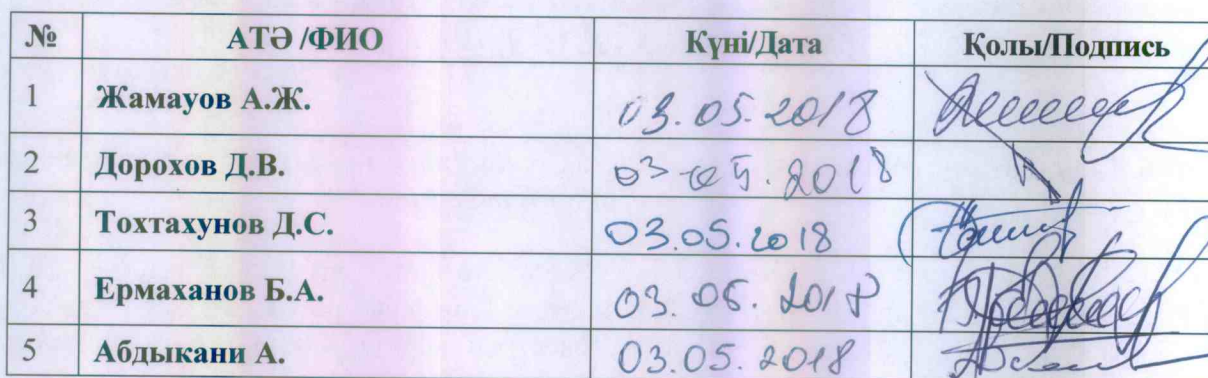 № АТӘ /ФИО Күні/Дата Қолы/Подпись
1 Жамауов А.Ж. 03.05.2018
2 Дорохов Д.В. 03.05.2018
3 Тохтахунов Д.С. 03.05.2018
4 Ермаханов Б.А. 03.05.2018
5 Абдыкани А. 03.05.2018